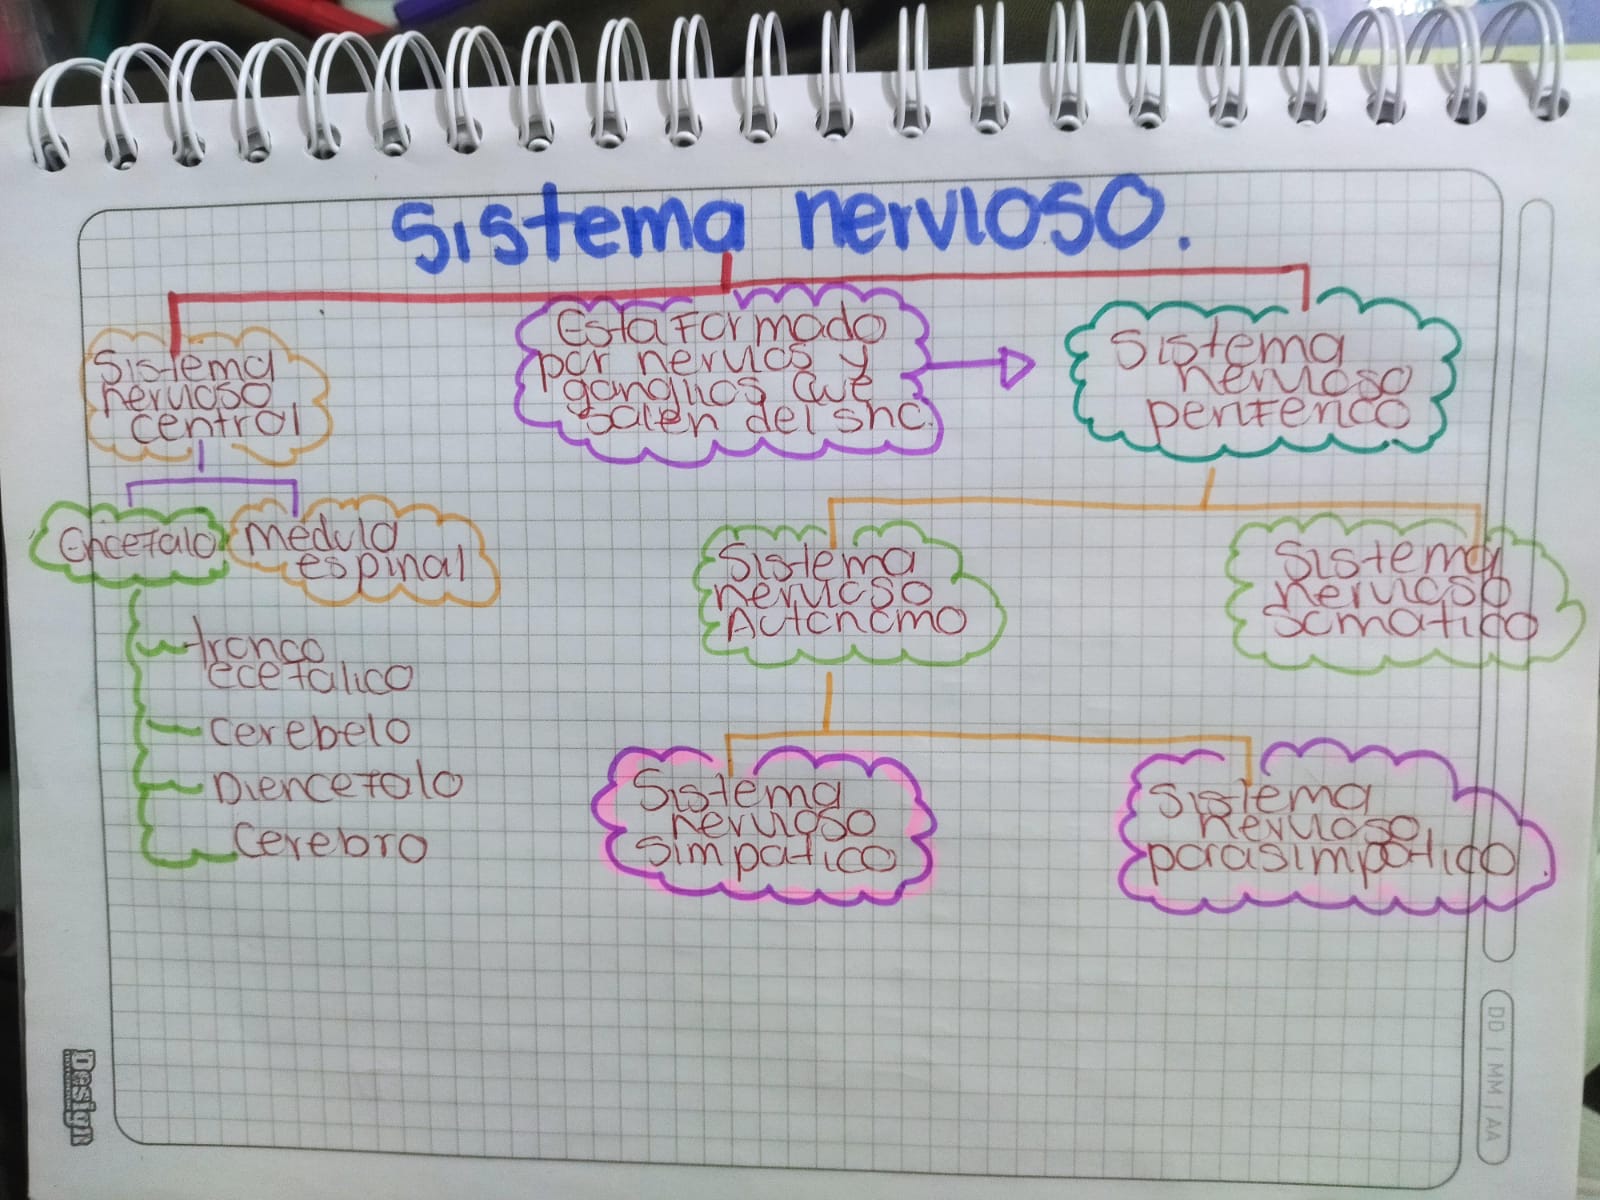 Sistema nervioso.
Sistema
nervioso
central
Esta Formado
por nervios y
ganglios que
salen del snc.
Sistema
nervioso
periferico
Encefalo
Medula
espinal
tronco
ecefalico
cerebelo
Diencefalo
cerebro
Sistema
nervioso
Autonomo
Sistema
nervioso
Somatico
Sistema
nervioso
Simpatico
Sistema
Nervioso
parasimpatico
Design
DD | MM | AA